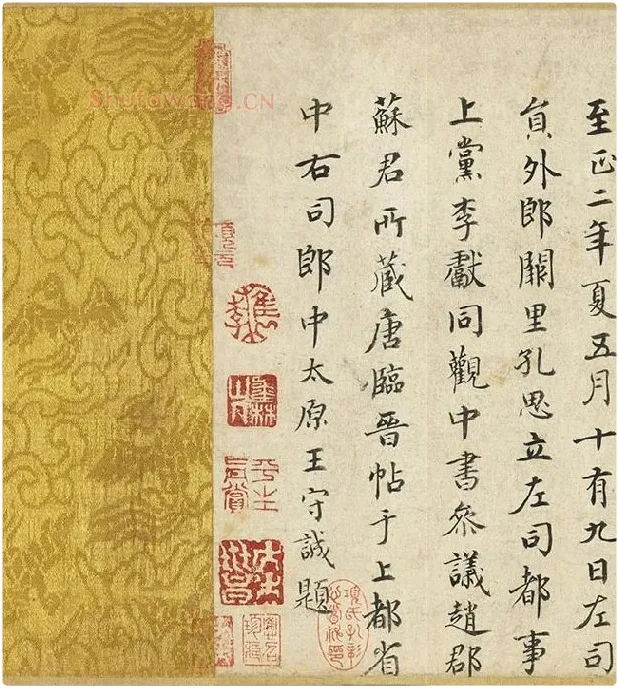 至正二年夏五月十有九日左司
員外郎闕里孔思立左司都事
上黨李獻同觀中書參議趙郡
蘇君所藏唐臨晉帖于上都省
中右司郎中太原王守誠題
項氏子彰
平生真賞
Shufawang.CN